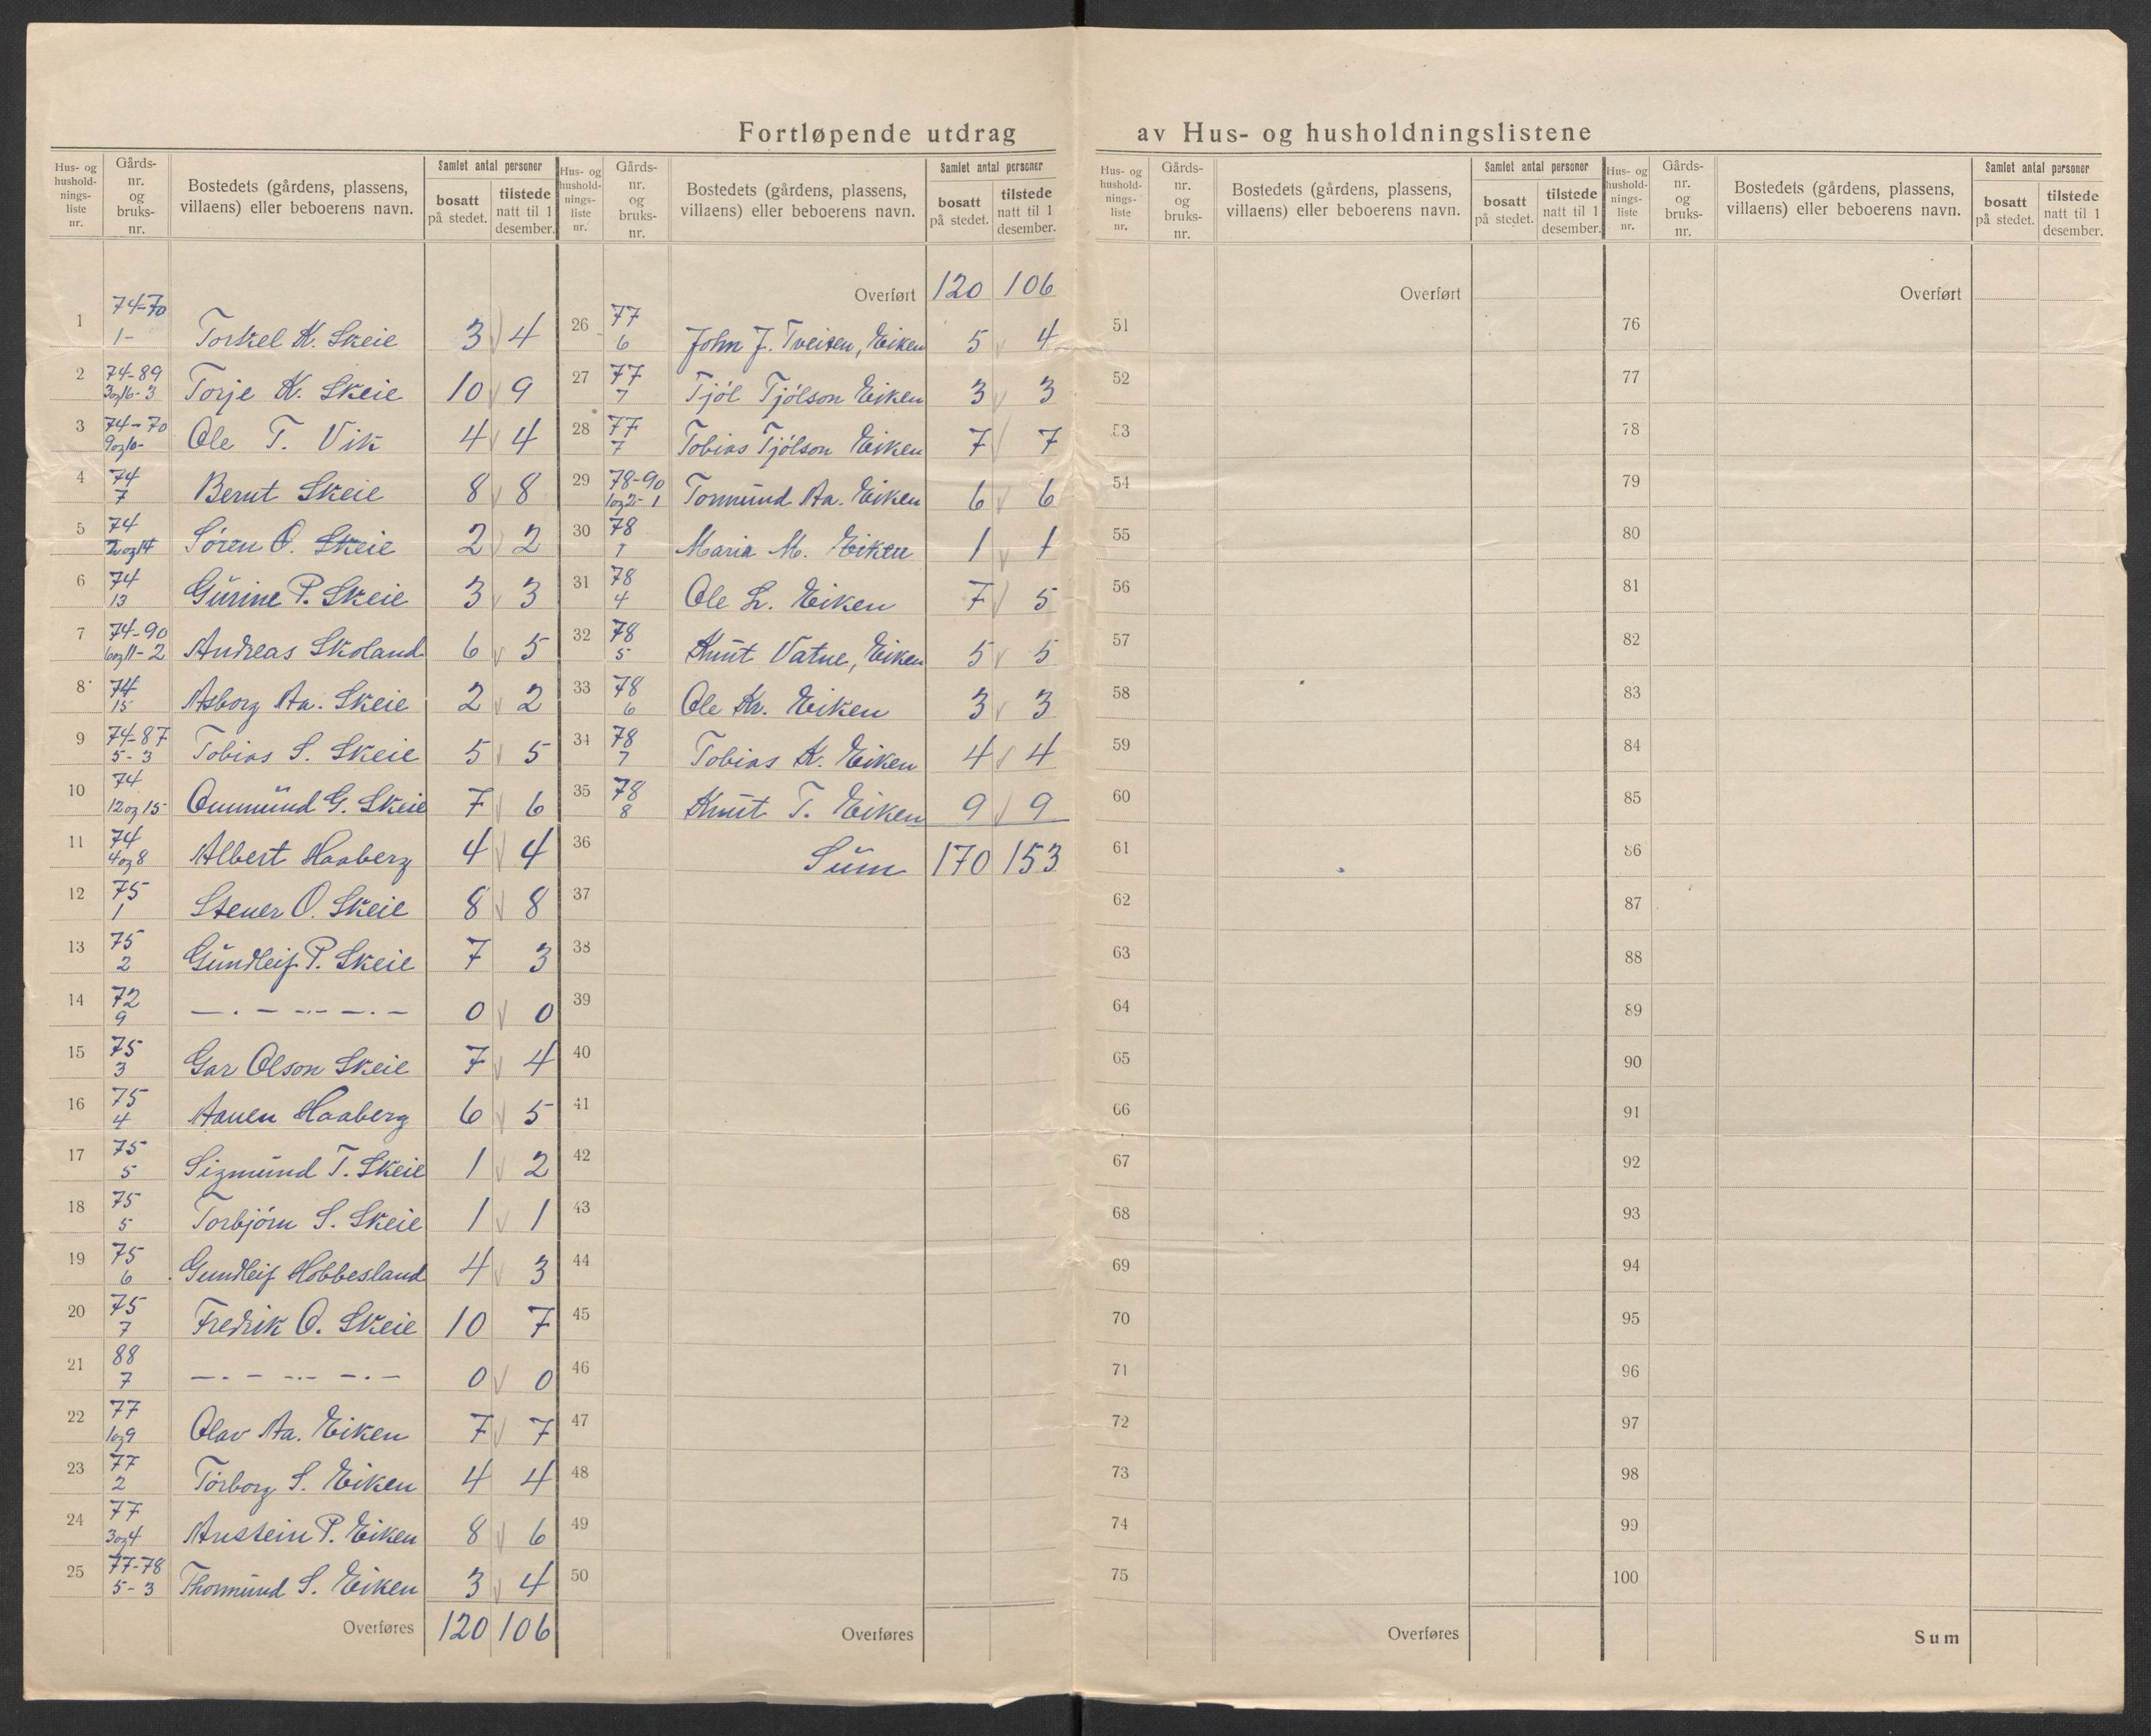 Fortløpende utdrag av Hus- og husholdningslistene
Hus- og hushold-nings-liste nr. | Gårds-nr. og bruks-nr. | Bostedets (gårdens, plassens, villaens) eller beboerens navn. | Samlet antal personer | bosatt på stedet. | tilstede natt til 1 desember.
1 74-70 1- Torkel K. Skeie 3 4
2 74-89 3og16-3 Torje K. Skeie 10 9
3 74-70 9og10- Ole T. Vik 4 4
4 74 7 Bernt Skeie 8 8
5 74 2og14 Søren O. Skeie 2 2
6 74 13 Gurine P. Skeie 3 3
7 74-90 6og11-2 Andreas Skoland 6 5
8 74 15 Asborg Aa. Skeie 2 2
9 74-87 5-3 Tobias S. Skeie 5 5
10 74 12og15 Ommund G. Skeie 7 6
11 74 4og8 Albert Haaberg 4 4
12 75 1 Stener O. Skeie 8 8
13 75 2 Gundleif P. Skeie 7 3
14 72 9 — . — — . — 0 0
15 75 3 Gar Olson Skeie 7 4
16 75 4 Aanen Haaberg 6 5
17 75 5 Sigmund T. Skeie 1 2
18 75 5 Torbjørn S. Skeie 1 1
19 75 6 Gundleif Hobbesland 4 3
20 75 7 Fredrik O. Skeie 10 7
21 88 7 — . — — . — 0 0
22 77 1og9 Olav Aa. Eiken 7 7
23 77 2 Torborg S. Eiken 4 4
24 77 3og4 Anstein P. Eiken 8 6
25 77-78 5-3 Thormund S. Eiken 3 4
Overføres 120 106
Hus- og hushold-nings-liste nr. | Gårds-nr. og bruks-nr. | Bostedets (gårdens, plassens, villaens) eller beboerens navn. | Samlet antal personer | bosatt på stedet. | tilstede natt til 1 desember.
Overført 120 106
26 77 6 John J. Tveiten, Eiken 5 4
27 77 7 Tjøl Tjølson Eiken 3 3
28 77 7 Tobias Tjølson Eiken 7 7
29 78-90 1og2-1 Tormund Aa. Eiken 6 6
30 78 1 Maria M. Eiken 1 1
31 78 4 Ole L. Eiken 7 5
32 78 5 Knut Vatne, Eiken 5 5
33 78 6 Ole Kr. Eiken 3 3
34 78 7 Tobias K. Eiken 4 4
35 78 8 Knut T. Eiken 9 9
36 Sum 170 153
37
38
39
40
41
42
43
44
45
46
47
48
49
50
Overføres
Hus- og hushold-nings-liste nr. | Gårds-nr. og bruks-nr. | Bostedets (gårdens, plassens, villaens) eller beboerens navn. | Samlet antal personer | bosatt på stedet. | tilstede natt til 1 desember.
Overført
51
52
53
54
55
56
57
58
59
60
61
62
63
64
65
66
67
68
69
70
71
72
73
74
75
Overføres
Hus- og hushold-nings-liste nr. | Gårds-nr. og bruks-nr. | Bostedets (gårdens, plassens, villaens) eller beboerens navn. | Samlet antal personer | bosatt på stedet. | tilstede natt til 1 desember.
Overført
76
77
78
79
80
81
82
83
84
85
86
87
88
89
90
91
92
93
94
95
96
97
98
99
100
Sum